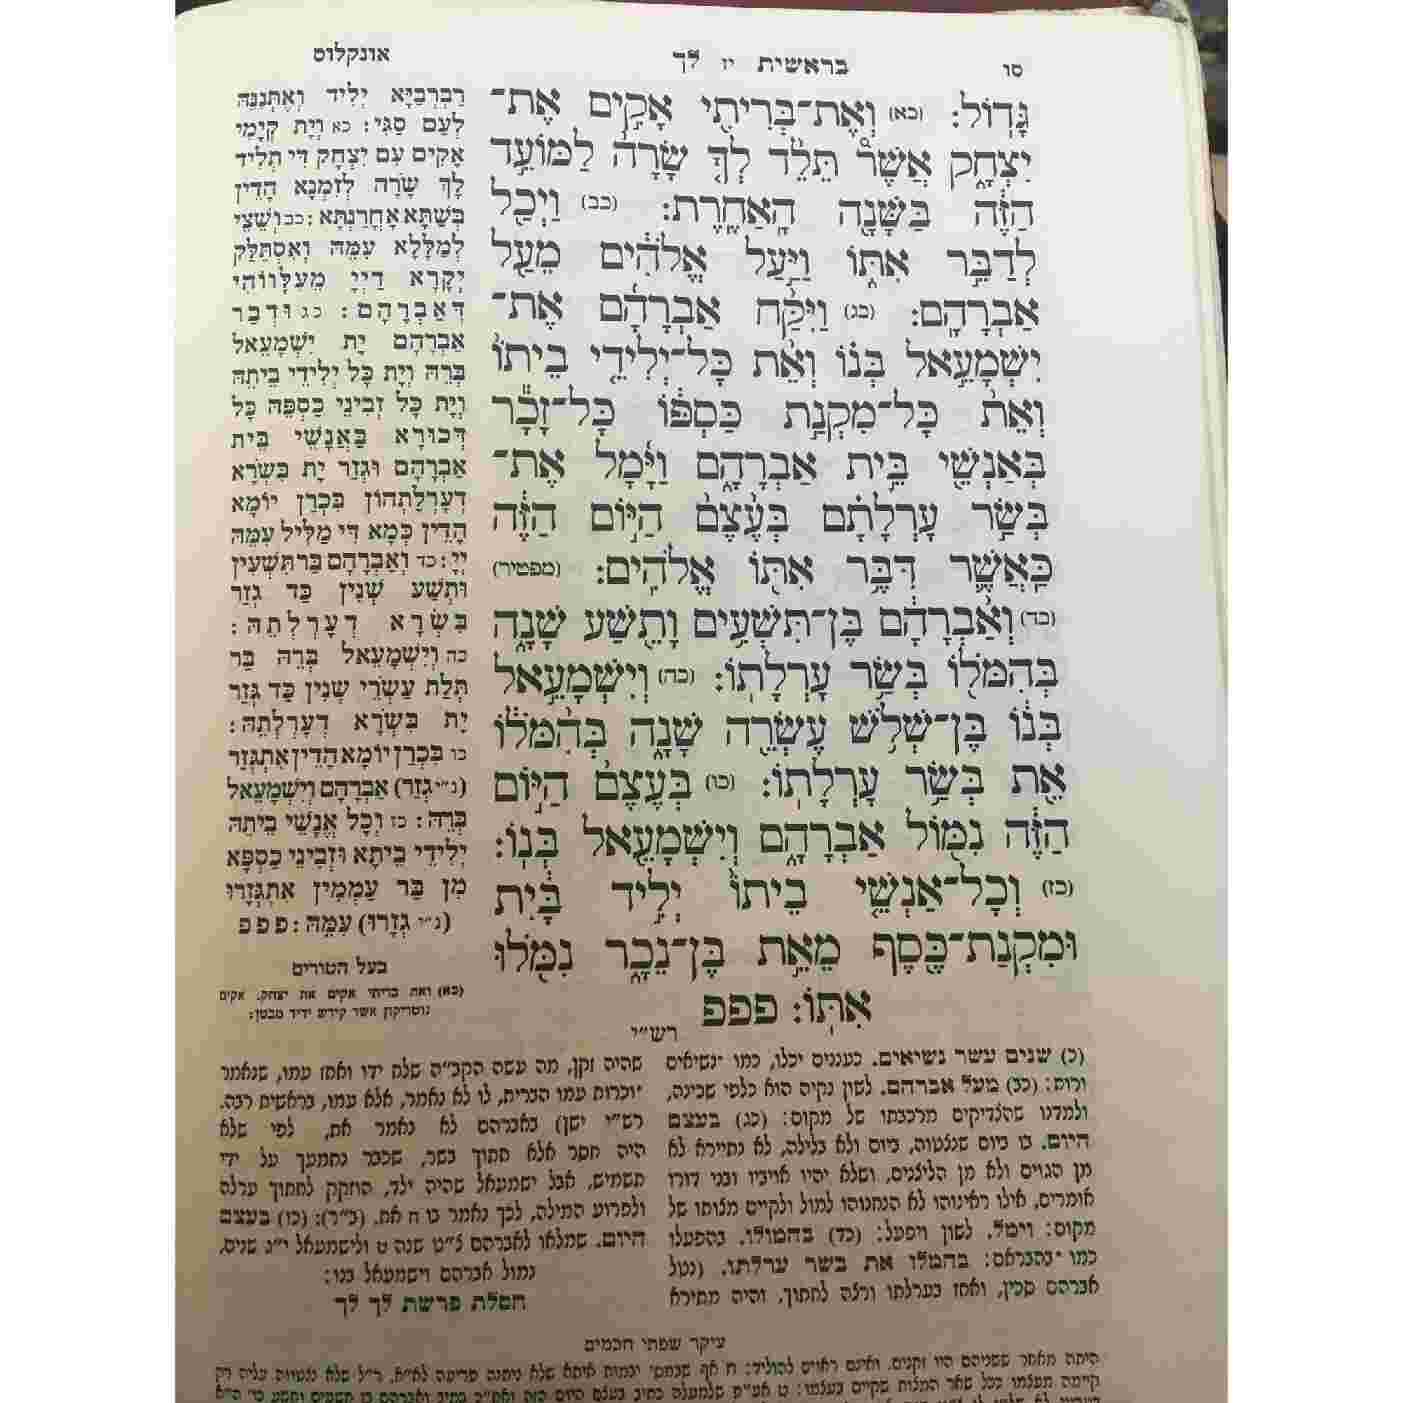 סו
בראשית יז לך
אונקלוס
גָּדֽוֹל׃ (כא) וְאֶת־בְּרִיתִ֖י אָקִ֣ים אֶת־
יִצְחָ֑ק אֲשֶׁר֩ תֵּלֵ֨ד לְךָ֤ שָׂרָה֙ לַמּוֹעֵ֣ד
הַזֶּ֔ה בַּשָּׁנָ֖ה הָֽאַחֶֽרֶת׃ (כב) וַיְכַ֖ל
לְדַבֵּ֣ר אִתּ֑וֹ וַיַּ֣עַל אֱלֹהִ֔ים מֵעַ֖ל
אַבְרָהָֽם׃ (כג) וַיִּקַּ֨ח אַבְרָהָ֜ם אֶת־
יִשְׁמָעֵ֣אל בְּנ֗וֹ וְאֵ֨ת כָּל־יְלִידֵ֤י בֵיתוֹ֙
וְאֵת֙ כָּל־מִקְנַ֣ת כַּסְפּ֔וֹ כָּל־זָכָ֕ר
בְּאַנְשֵׁ֖י בֵּ֣ית אַבְרָהָ֑ם וַיָּ֜מָל אֶת־
בְּשַׂ֣ר עָרְלָתָ֗ם בְּעֶ֙צֶם֙ הַיּ֣וֹם הַזֶּ֔ה
כַּֽאֲשֶׁ֛ר דִּבֶּ֥ר אִתּ֖וֹ אֱלֹהִֽים׃ (מפטיר)
(כד) וְאַ֨בְרָהָ֔ם בֶּן־תִּשְׁעִ֥ים וָתֵ֖שַׁע שָׁנָ֑ה
בְּהִמֹּל֖וֹ בְּשַׂ֥ר עָרְלָתֽוֹ׃ (כה) וְיִשְׁמָעֵ֣אל
בְּנ֔וֹ בֶּן־שְׁלֹ֥שׁ עֶשְׂרֵ֖ה שָׁנָ֑ה בְּהִ֨מֹּל֔וֹ
אֵ֖ת בְּשַׂ֥ר עָרְלָתֽוֹ׃ (כו) בְּעֶ֙צֶם֙ הַיּ֣וֹם
הַזֶּ֔ה נִמּ֖וֹל אַבְרָהָ֑ם וְיִשְׁמָעֵ֖אל בְּנֽוֹ׃
(כז) וְכָל־אַנְשֵׁ֤י בֵיתוֹ֙ יְלִ֣יד בָּ֔יִת
וּמִקְנַת־כֶּ֖סֶף מֵאֵ֣ת בֶּן־נֵכָ֑ר נִמֹּ֖לוּ
אִתּֽוֹ׃ פפפ
רַבְרְבַיָּא יְלִיד וְאֶתְּנִנֵּהּ
לְעַם סַגִּי: כא וְיָת קְיָמִי
אָקִים עִם יִצְחָק דִּי תְלִיד
לָךְ שָׂרָה לְזִמְנָא הָדֵין
בְּשַׁתָּא אָחֳרַנְתָּא: כב וְשֵׁצֵי
לְמַלָּלָא עִמֵּהּ וְאִסְתַּלַּק
יְקָרָא דַיְיָ מֵעִלָּווֹהִי
דְּאַבְרָהָם: כג וּדְבַר
אַבְרָהָם יָת יִשְׁמָעֵאל
בְּרֵהּ וְיָת כָּל יְלִידֵי בֵיתֵהּ
וְיָת כָּל זְבִינֵי כַסְפֵּהּ כָּל
דְּכוּרָא בַּאֲנָשֵׁי בֵּית
אַבְרָהָם וּגְזַר יָת בִּשְׂרָא
דְעָרְלַתְהוֹן בִּכְרַן יוֹמָא
הָדֵין כְּמָא דִי מַלִּיל עִמֵּהּ
יְיָ: כד וְאַבְרָהָם בַּר תִּשְׁעִין
וּתְשַׁע שְׁנִין כַּד גְּזַר
בִּשְׂרָא דְעָרְלְתֵהּ:
כה וְיִשְׁמָעֵאל בְּרֵהּ בַּר
תְּלַת עַשְׂרֵי שְׁנִין כַּד גְּזַר
יָת בִּשְׂרָא דְעָרְלְתֵהּ:
כו בִּכְרַן יוֹמָא הָדֵין אִתְגְּזַר
(נ״י גְזַר) אַבְרָהָם וְיִשְׁמָעֵאל
בְּרֵהּ: כז וְכָל אֱנָשֵׁי בֵיתֵהּ
יְלִידֵי בֵיתָא וּזְבִינֵי כַסְפָּא
מִן בַּר עַמְמִין אִתְגְּזָרוּ
(נ״י גְּזָרוּ) עִמֵּהּ: פפפ
בעל הטורים
(כא) ואת בריתי אקים את יצחק. אקים
נוטריקון אשר קידש ידיד מבטן:
רש״י
(כ) שנים עשר נשיאים. כעננים יכלו, כמו נשיאים
ורוח: (כב) מעל אברהם. לשון נקיה הוא כלפי שכינה,
ולמדנו שהצדיקים מרכבתו של מקום: (כג) בעצם
היום. בו ביום שנצטוה, ביום ולא בלילה, לא נתיירא לא
מן הגוים ולא מן הליצנים, ושלא יהיו אויביו ובני דורו
אומרים, אילו ראינוהו לא הנחנוהו למול ולקיים מצותו של
מקום: וימל. לשון ויפעל: (כד) בהמולו. בהפעלו
כמו בהבראם: בהמלו את בשר ערלתו. (נטל
אברהם סכין, ואחז בערלתו ורצה לחתוך, והיה מתירא
שהיה זקן, מה עשה הקב״ה שלח ידו ואחז עמו, שנאמר
וכרות עמו הברית, לו לא נאמר, אלא עמו, בראשית רבה.
רש״י ישן) באברהם לא נאמר את, לפי שלא
היה חסר אלא חתוך בשר, שכבר נתמעך על ידי
תשמיש, אבל ישמעאל שהיה ילד, הוזקק לחתוך ערלה
ולפרוע המילה, לכך נאמר בו ח את. (ב״ר): (כו) בעצם
היום. שמלאו לאברהם צ״ט שנה ט ולישמעאל י״ג שנים,
נמול אברהם וישמעאל בנו:
חסלת פרשת לך לך
עיקר שפתי חכמים
היתה מאחר ששניהם היו זקנים. ואינם ראוים להוליד: ח אף שבמס׳ יבמות איתא שלא ניתנה פריעה לא״א, ר״ל שלא נצטוה עליה רק
קיימה מעצמו ככל שאר המצות שקיים בעצמו: ט אע״פ שלמעלה כתיב בעצם היום הזה